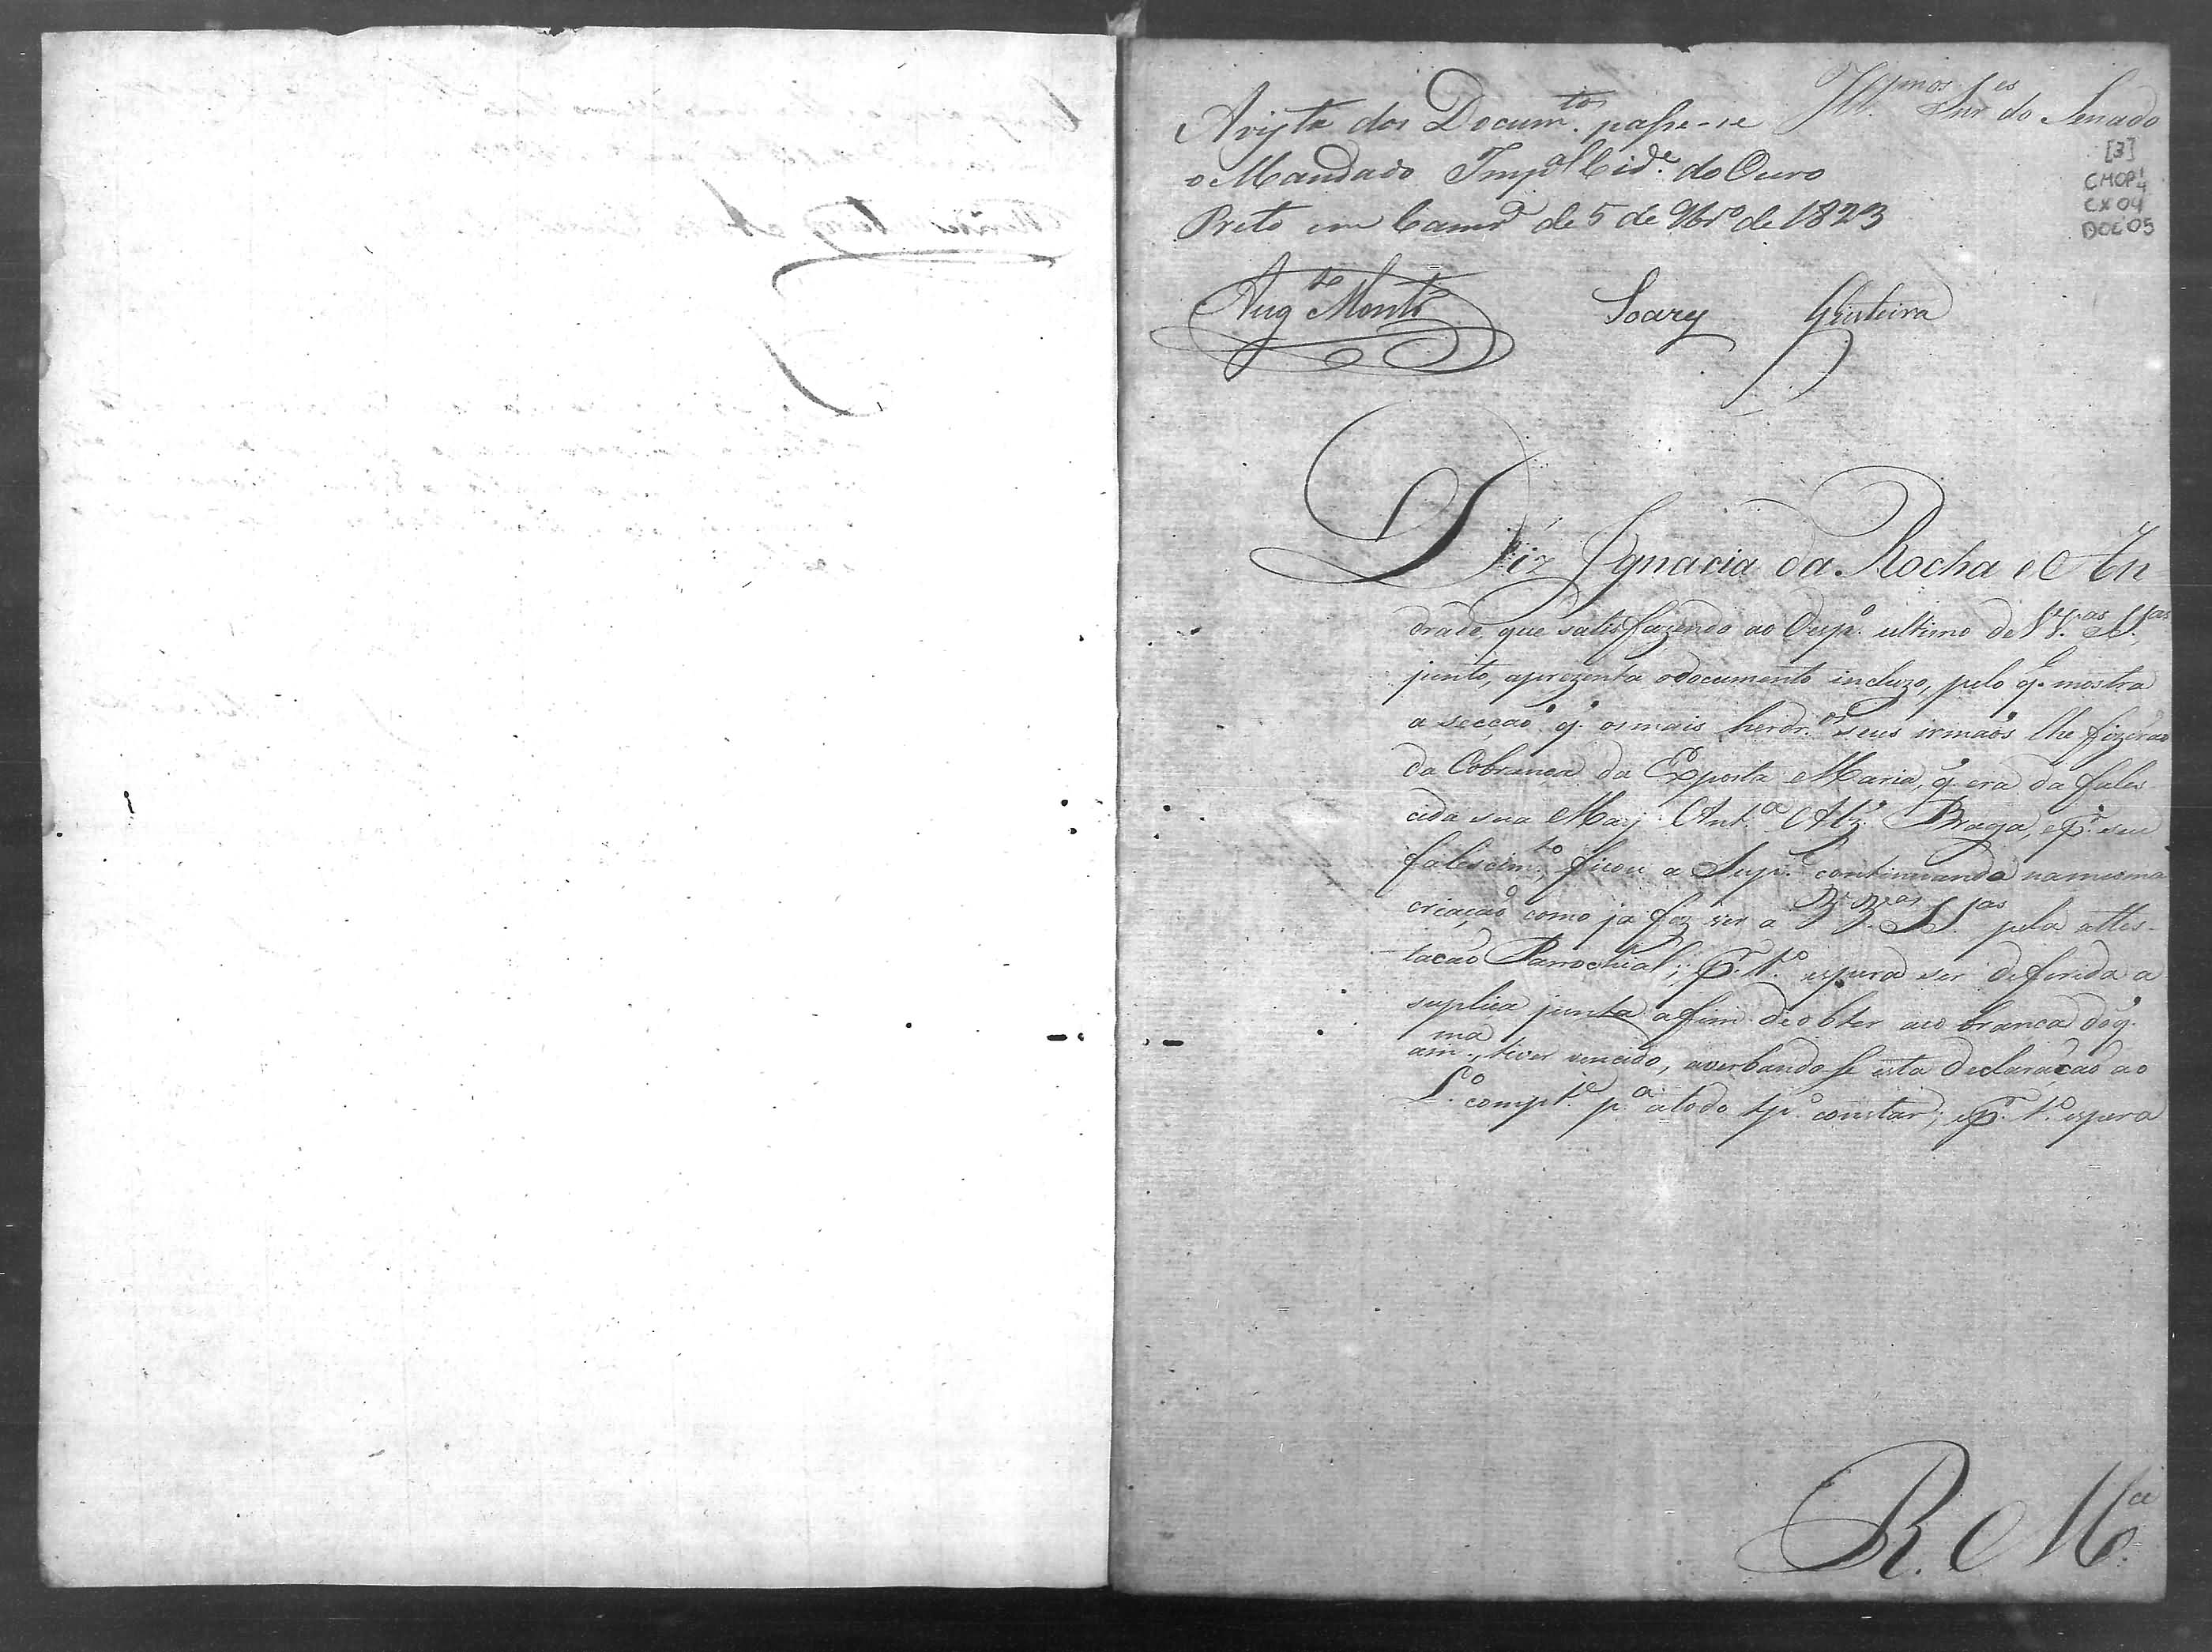 Avista dos Docum.tos passe-se
o Mandado Imp.al Cid.e do Ouro
Preto em Camr.a de 5 de 9br.o de 1823
Ill.mos Snr.es do Senado
[3]
CMOP
CX 04
DOC 05
Aug.to Montr.o Soares
Diz Ignacia da Rocha e An
drade, que satisfazendo ao Desp.o ultimo de V.as S.as
junto, aprezenta o documento incluzo, pelo q. mostra
a secção q. os mais herdr.os seus irmaos lhe fizerão
da Cobrança da Exposta Maria, q. era da fales
cida sua May Ant.a Alz. Braga, e p.r seu
falescim.to, ficou a Sup.e continuando na mesma
criação como ja fez ver a V.as S.as pela attes-
tacao Parrochial; p.r t.o espera ser deferida a
suplica junta afim de obter acobranca do q.
a m.ma tiver vencido, averbando se esta declaração ao
L.o compt.e p.a atodo tp.o constar; e p.r t.o espera
R. M.ce